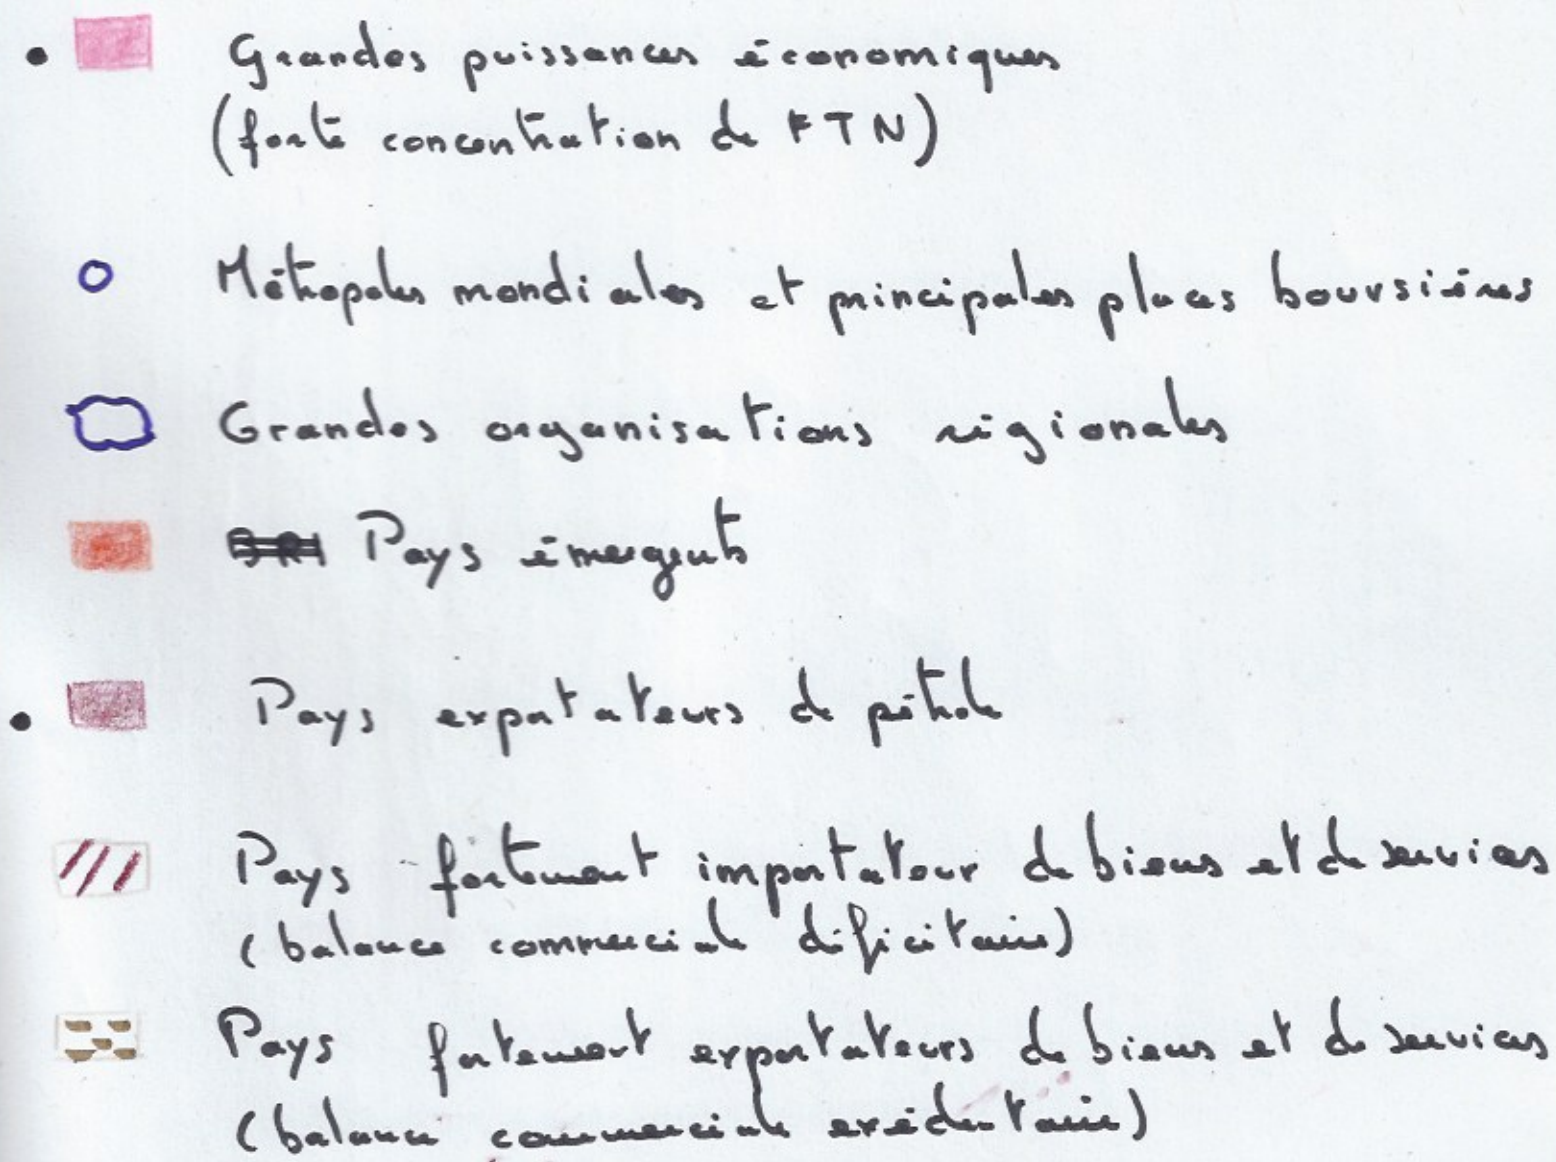 Grandes puissances économiques
(forte concentration de FTN)
Métropoles mondiales et principales places boursières
Grandes organisations régionales
Pays émergents
Pays exportateurs de pétrole
Pays fortement importateur de biens et de services
(balance commerciale déficitaire)
Pays fortement exportateurs de biens et de services
(balance commerciale exédentaire)